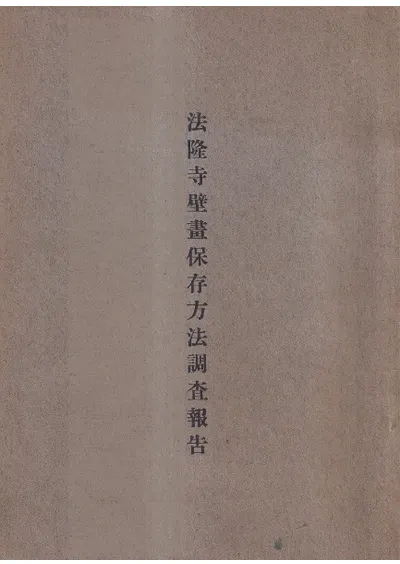 法隆寺壁畫保存方法調査報告